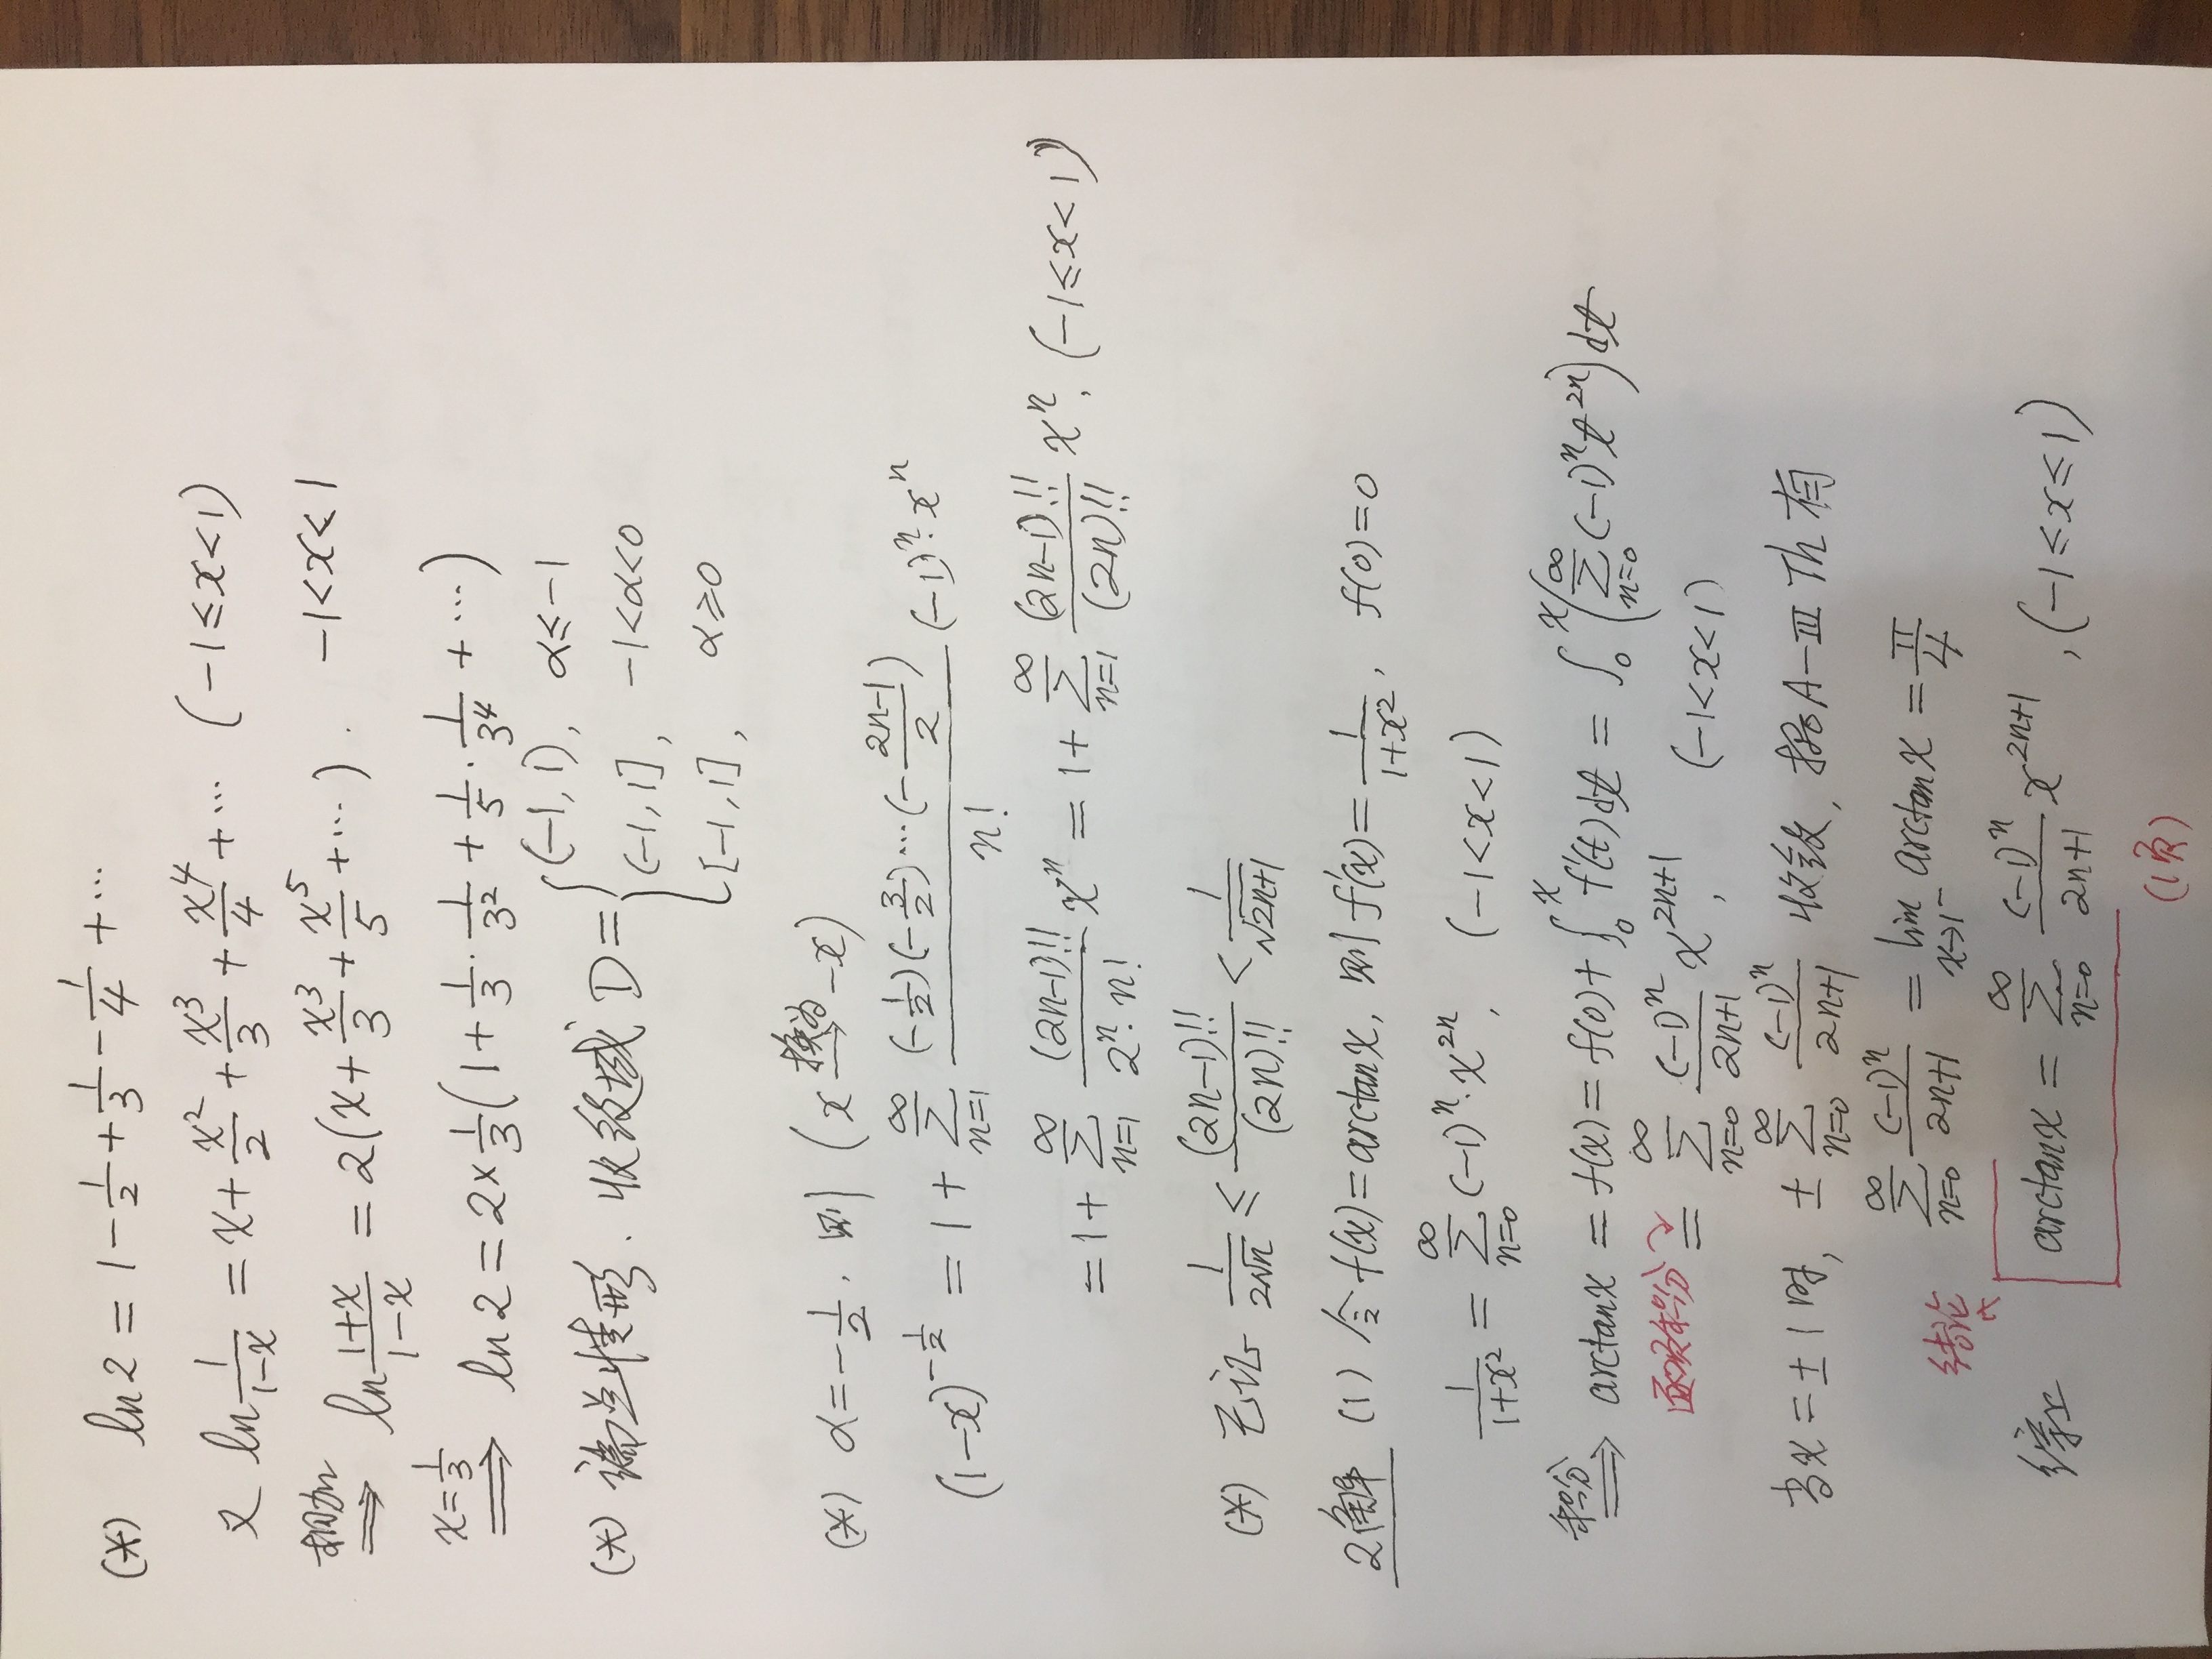 (*) ln2 = 1 - 1/2 + 1/3 - 1/4 + ⋯
又 ln 1/(1-x) = x + x²/2 + x³/3 + x⁴/4 + ⋯ (-1≤x<1)
相加 ⟹ ln (1+x)/(1-x) = 2(x + x³/3 + x⁵/5 + ⋯). -1<x<1
x=1/3 ⟹ ln2 = 2×1/3(1 + 1/3·1/3² + 1/5·1/3⁴ + ⋯)
(*) 端点情形. 收敛域 D = { (-1,1), α≤-1
(-1,1], -1<α<0
[-1,1], α≥0
(*) α=-1/2. 则 (x 换为→ -x)
(1-x)^(-1/2) = 1 + ∑_{n=1}^{∞} (-1/2)(-3/2)⋯(-(2n-1)/2) / n! (-1)ⁿ·xⁿ
= 1 + ∑_{n=1}^{∞} (2n-1)!!/(2ⁿ·n!) xⁿ = 1 + ∑_{n=1}^{∞} (2n-1)!!/(2n)!! xⁿ, (-1≤x<1)
(*) 已证 1/(2√n) ≤ (2n-1)!!/(2n)!! < 1/√(2n+1)
2解 (1) 令 f(x)=arctanx, 则 f'(x)=1/(1+x²), f(0)=0
1/(1+x²) = ∑_{n=0}^{∞} (-1)ⁿ·x²ⁿ, (-1<x<1)
积分 ⟹ arctanx = f(x) = f(0) + ∫₀ˣ f'(t)dt = ∫₀ˣ (∑_{n=0}^{∞} (-1)ⁿ t²ⁿ) dt
逐项积分 = ∑_{n=0}^{∞} (-1)ⁿ/(2n+1) x²ⁿ⁺¹, (-1<x<1)
当x=±1时, ± ∑_{n=0}^{∞} (-1)ⁿ/(2n+1) 收敛, 据A-Ⅲ Th 有
∑_{n=0}^{∞} (-1)ⁿ/(2n+1) = lim_{x→1⁻} arctanx = π/4
结论
综上 arctanx = ∑_{n=0}^{∞} (-1)ⁿ/(2n+1) x²ⁿ⁺¹, (-1≤x≤1)
(1页)